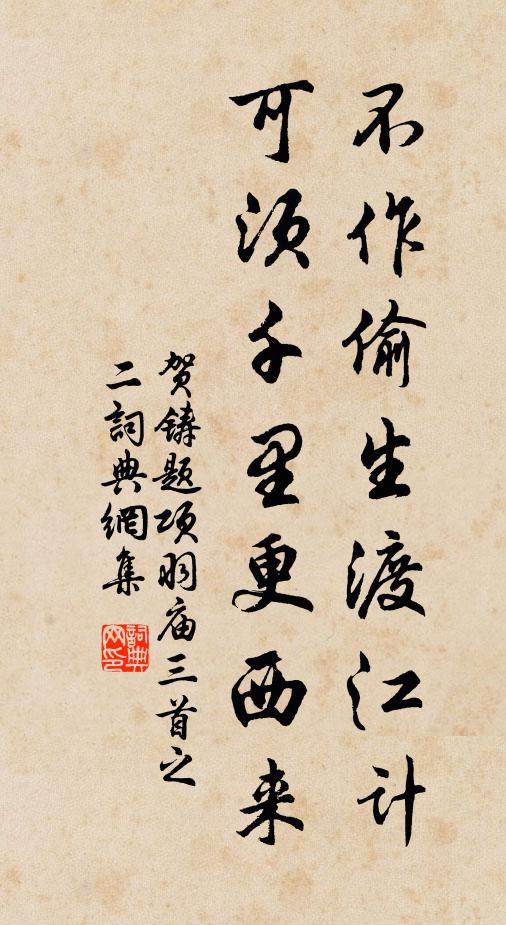 不作偷生渡江计
可须千里更西来
贺铸题项羽庙三首之
二詞典網集
詞典网印